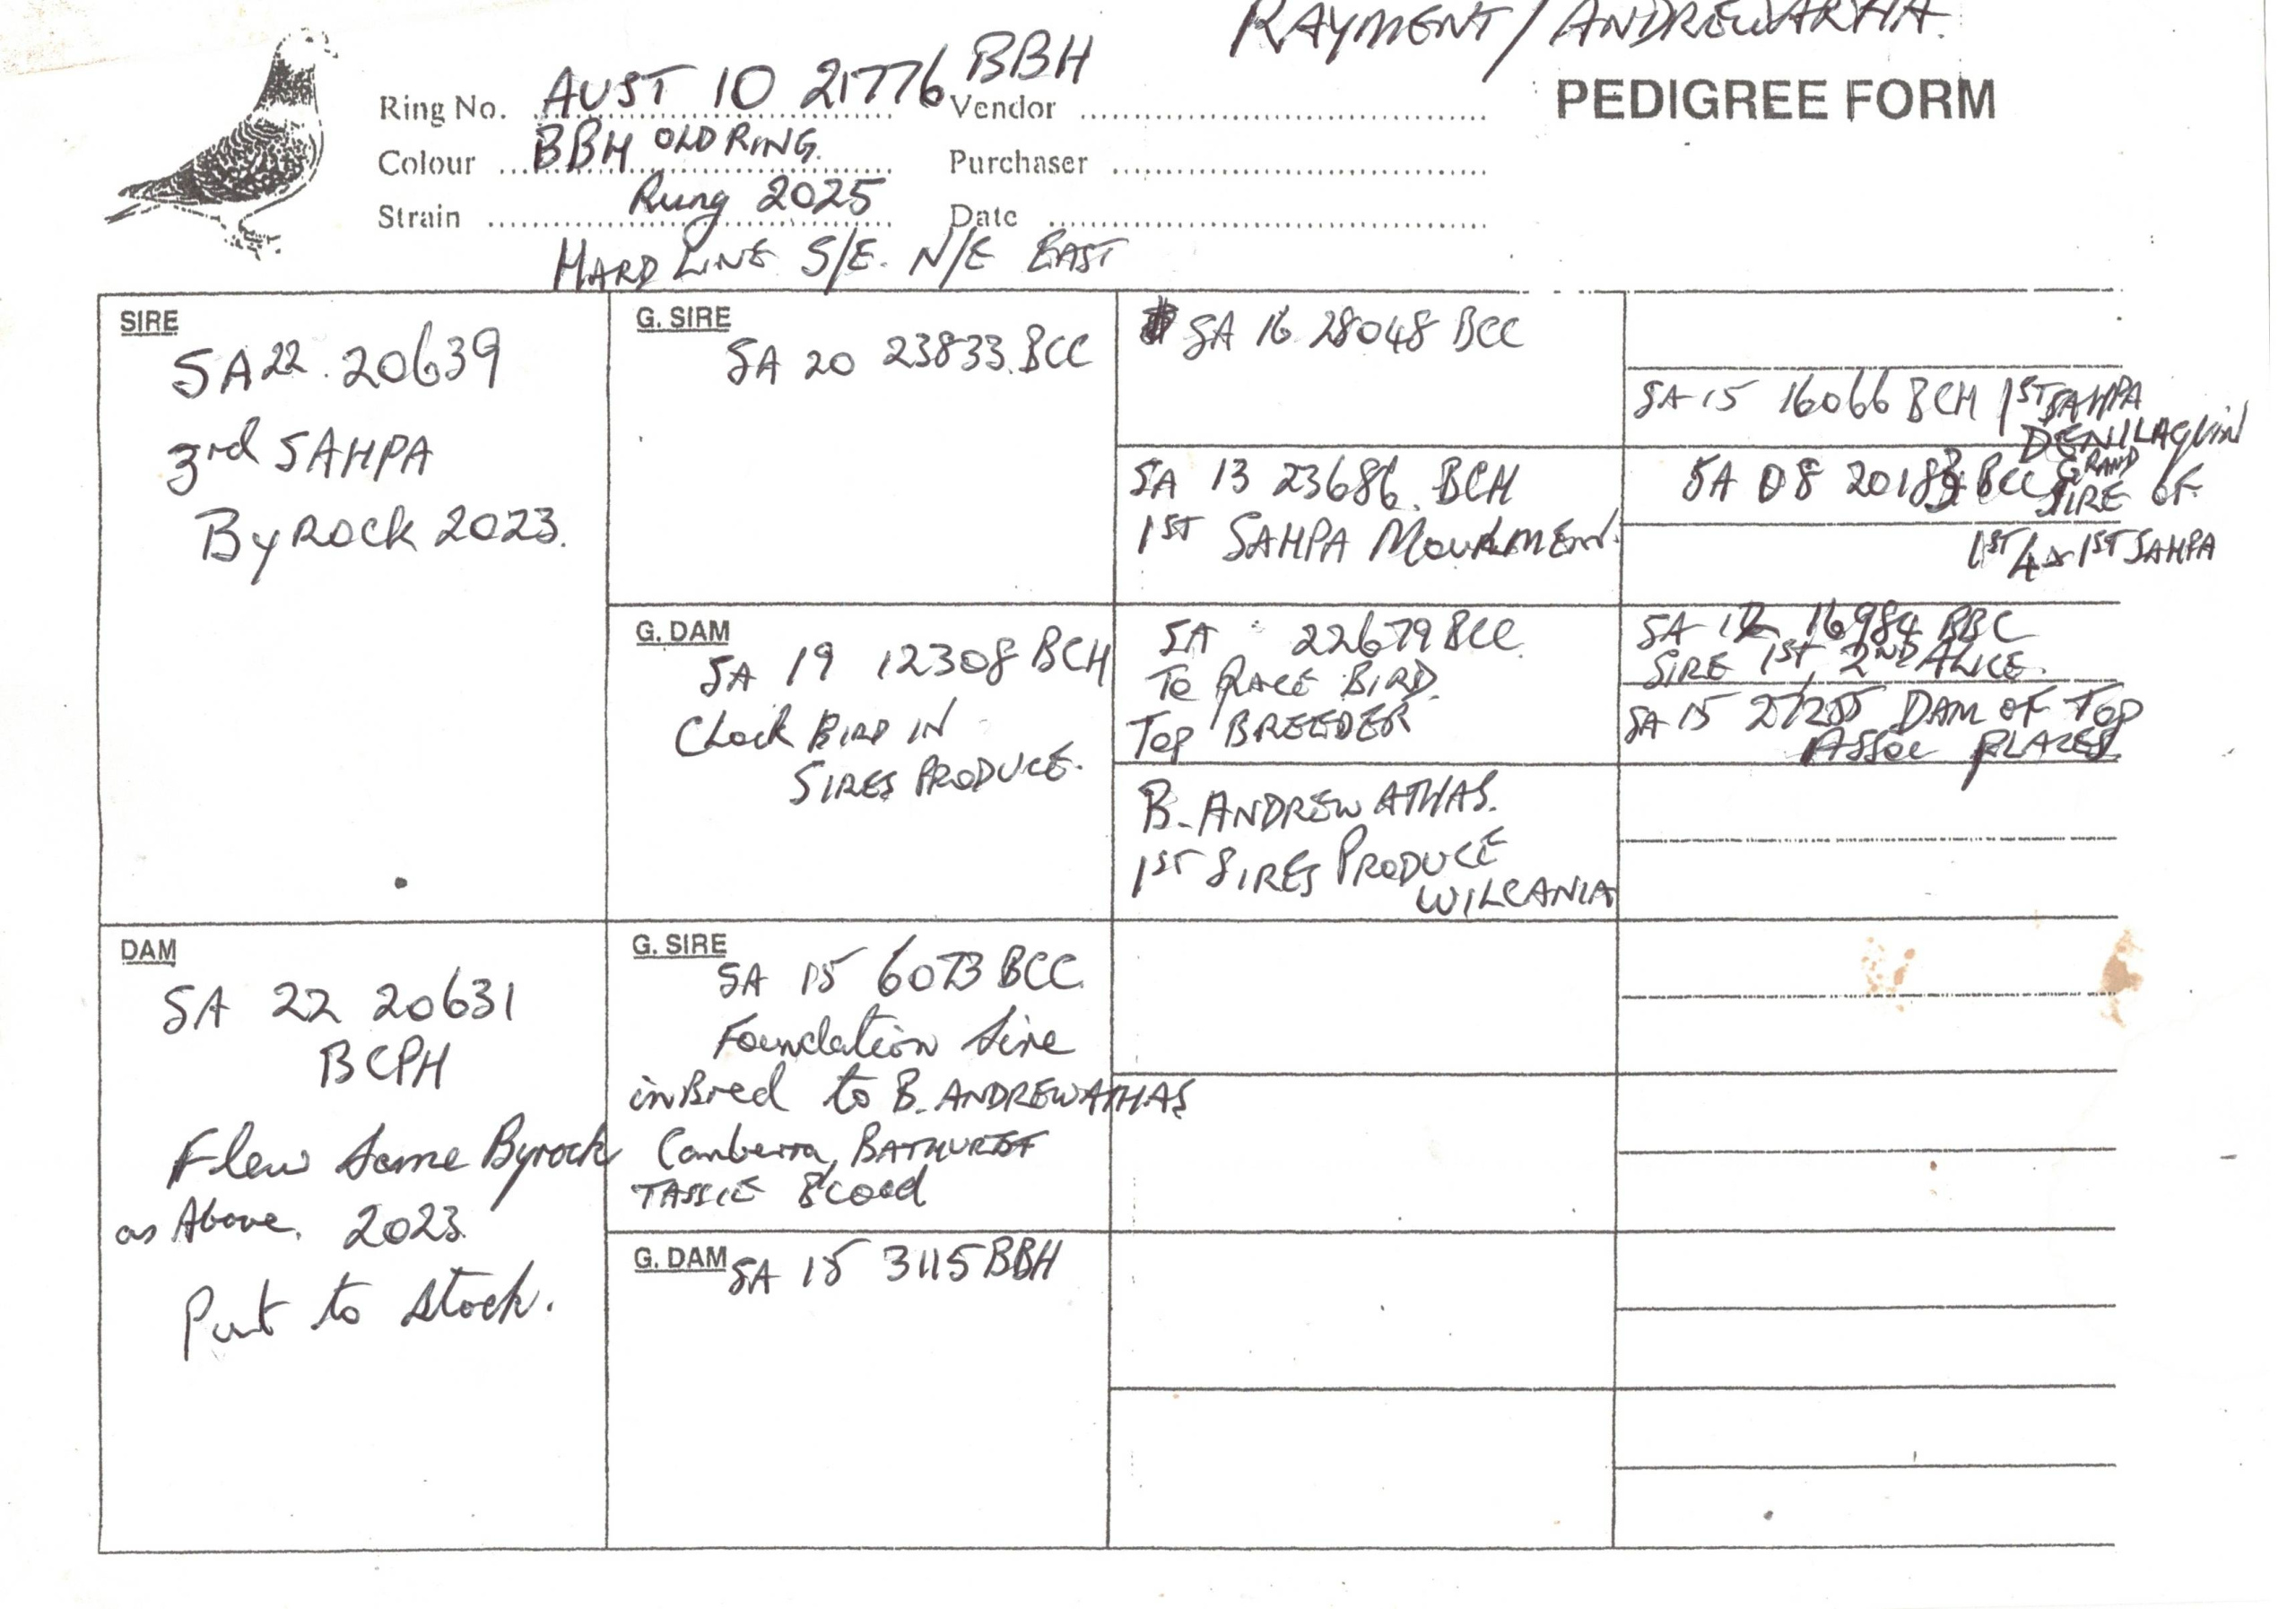 RAYMENT / ANDREWARTHA.
PEDIGREE FORM
Ring No. AUST 10 21776 BBH
Vendor
Colour BBH OLD RING.
Purchaser
Strain Rung 2025
Date
HARD LINE S/E. N/E EAST
SIRE
SA 22. 20639
3rd SAHPA
Byrock 2023.
G. SIRE
SA 20 23833. BCC
SA 16 28048 BCC
SA 15 16066 BCH 1ST SAHPA
DENILAQUIN
SA 13 23686. BCH
1ST SAHPA
SA 08 BCC GRAND
SIRE OF
1ST/4x 1ST SAHPA
G. DAM
SA 19 12308 BCH
Clock BIRD IN
SIRES PRODUCE.
SA 22679 BCC.
To RACE BIRD.
Top BREEDER
SA 16984 BBC
SIRE 1ST, 2ND ALICE.
SA 15 DAM OF TOP
Assoc PLACES
B. ANDREWATHAS.
1ST SIRES PRODUCE
WILCANIA
DAM
SA 22 20631
BCPH
Flew Same Byrock
as Above. 2023.
Put to stock.
G. SIRE
SA 15 6073 BCC
Foundation Sire
inBred to B. ANDREWATHAS
Canberra, BATHURST
TASSIE Blood
G. DAM
SA 15 3115 BBH